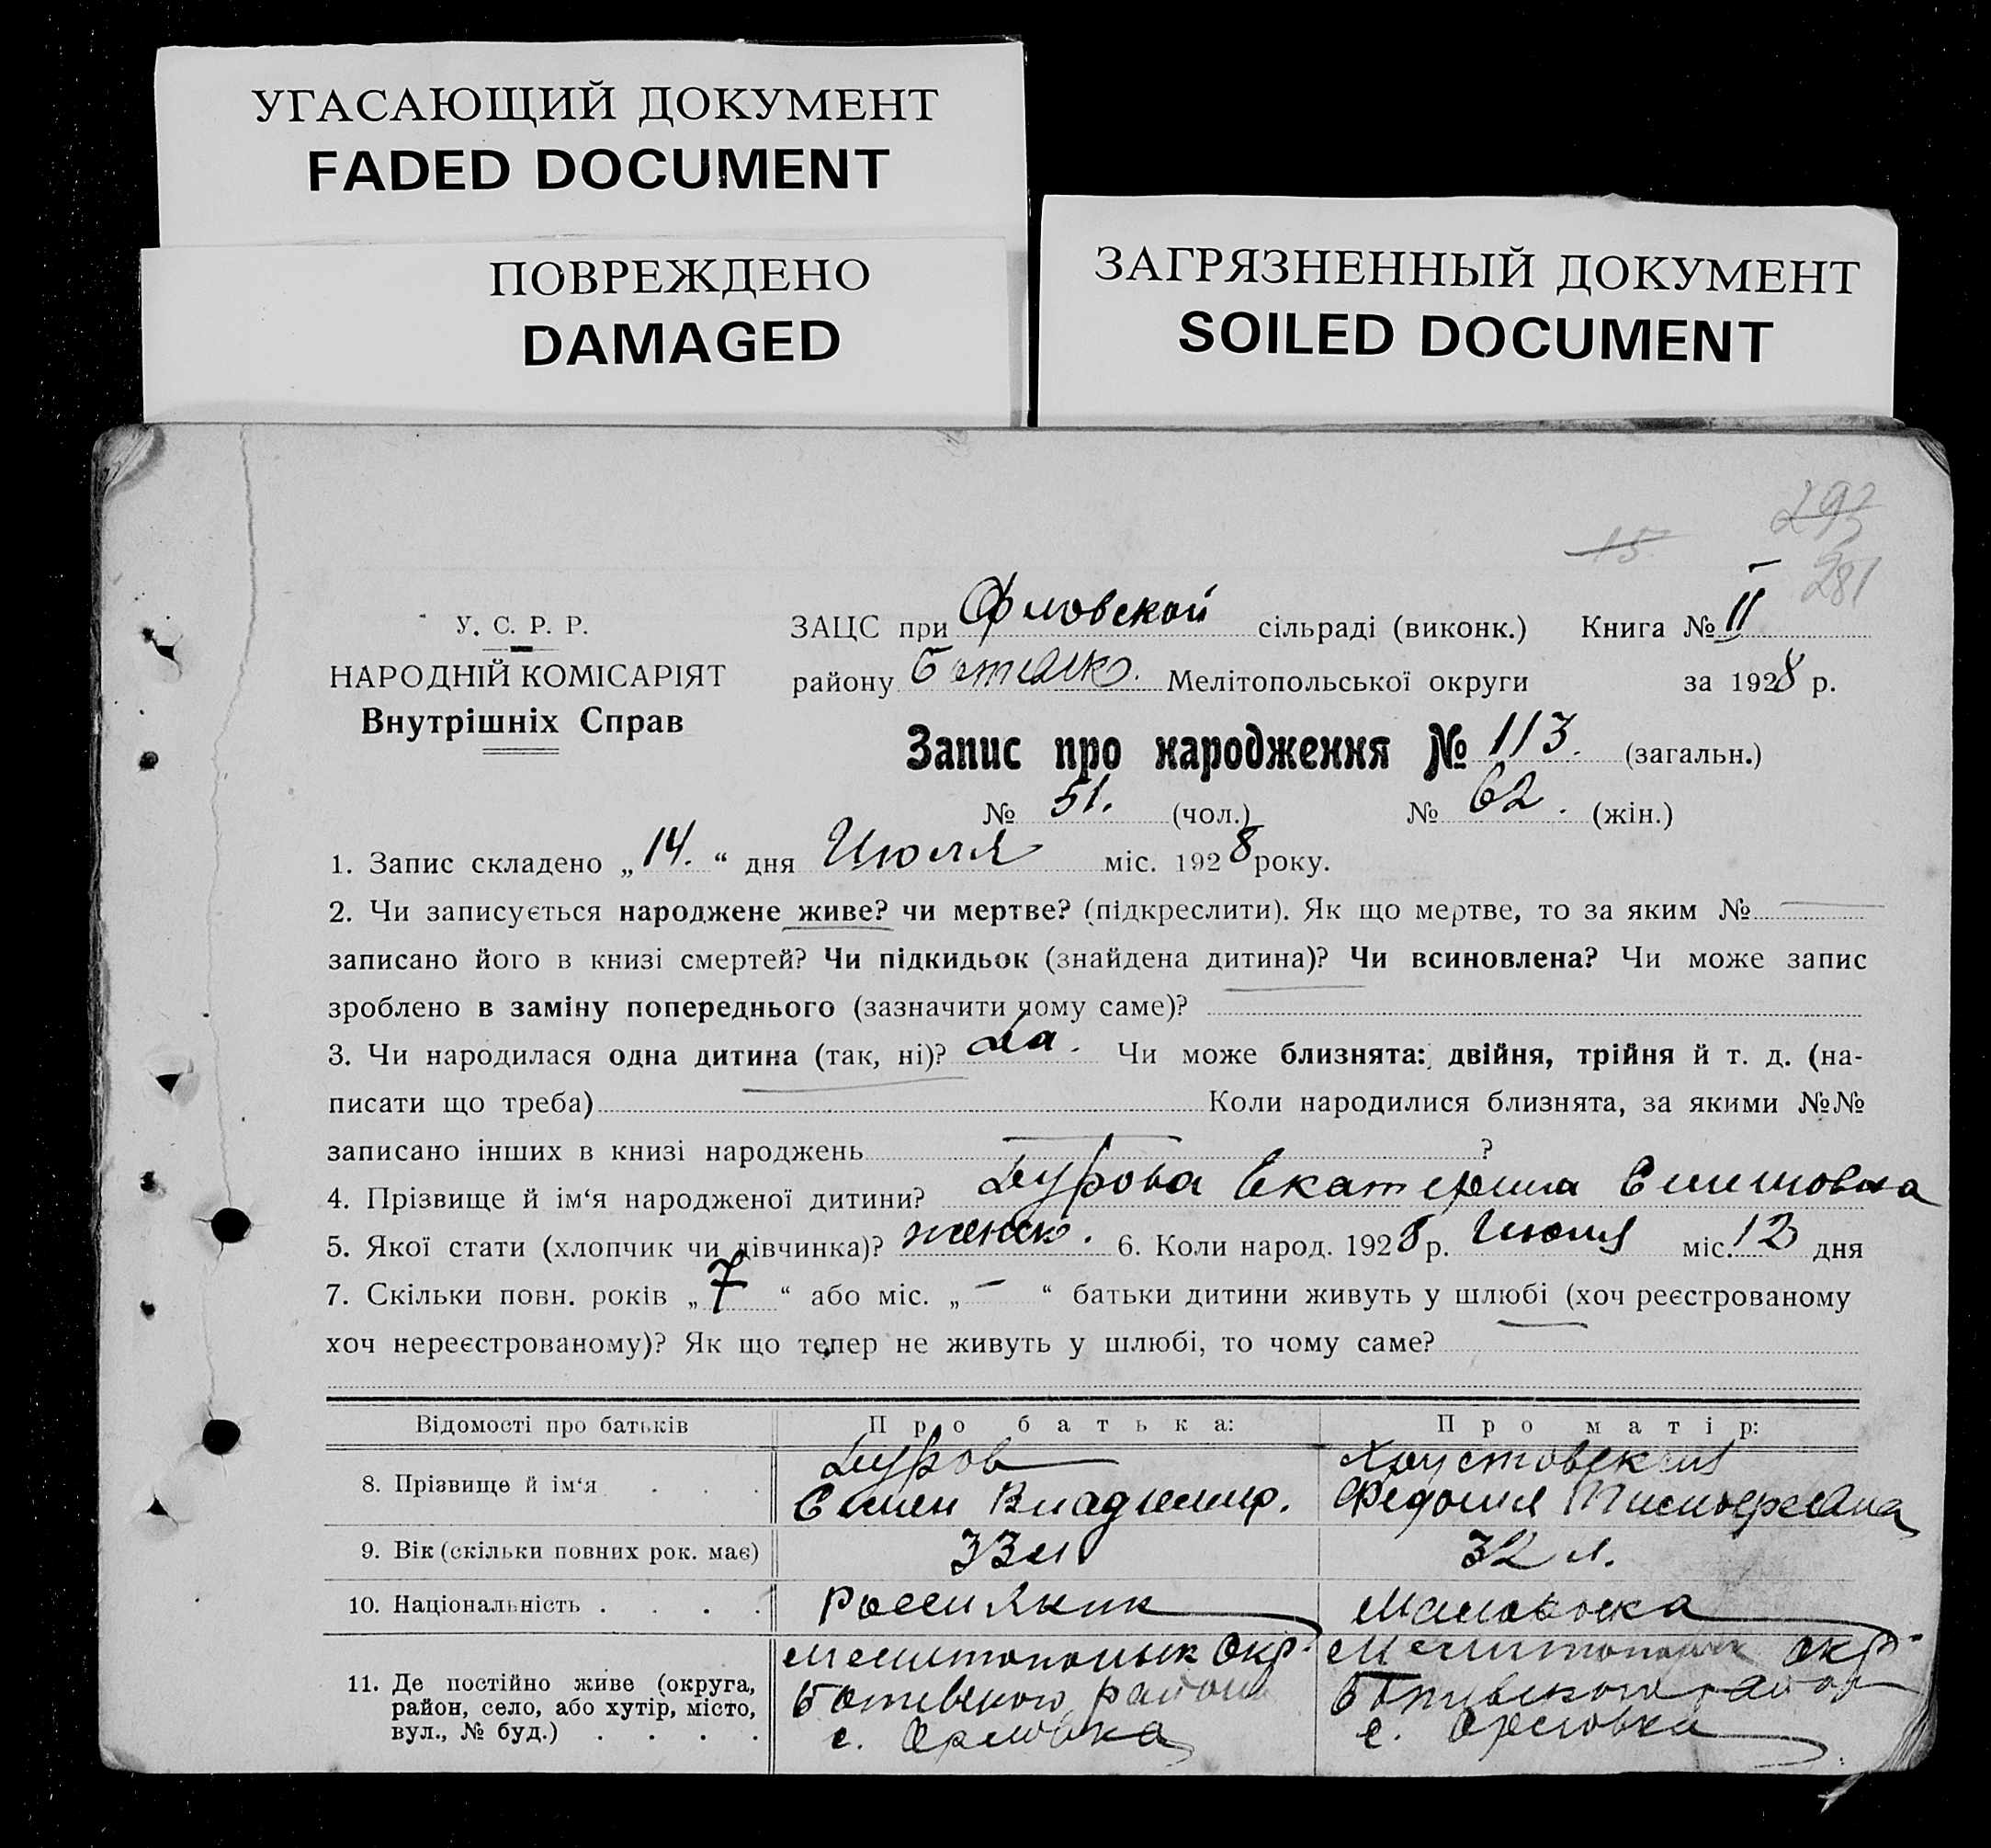 УГАСАЮЩИЙ ДОКУМЕНТ
FADED DOCUMENT
ПОВРЕЖДЕНО
DAMAGED
ЗАГРЯЗНЕННЫЙ ДОКУМЕНТ
SOILED DOCUMENT
293
15
281
У. С. Р. Р.
НАРОДНІЙ КОМІСАРІЯТ
Внутрішніх Справ
ЗАЦС при Орловской сільраді (виконк.) Книга № II
району Мелітопольської округи за 1928 р.
Запис про народження № 113. (загальн.)
№ 51. (чол.) № 62. (жін.)
1. Запис складено „14.“ дня Июля міс. 1928 року.
2. Чи записується народжене живе? чи мертве? (підкреслити). Як що мертве, то за яким №
записано його в книзі смертей? Чи підкидьок (знайдена дитина)? Чи всиновлена? Чи може запис
зроблено в заміну попереднього (зазначити чому саме)?
3. Чи народилася одна дитина (так, ні)? Да. Чи може близнята: двійня, трійня й т. д. (на-
писати що треба) Коли народилися близнята, за якими №№
записано інших в книзі народжень ?
4. Прізвище й ім‘я народженої дитини? Дурова Екатерина
5. Якої стати (хлопчик чи дівчинка)? женск. 6. Коли народ. 1928 р. Июля міс. 12 дня
7. Скільки повн. років „7“ або міс. „—“ батьки дитини живуть у шлюбі (хоч реєстрованому
хоч нереєстрованому)? Як що тепер не живуть у шлюбі, то чому саме?
Відомості про батьків Про батька: Про матір:
8. Прізвище й ім‘я . . . Дуров
Семен Владимир.
9. Вік (скільки повних рок. має) 33 л 32 л.
10. Національність . . . . Россиянин
11. Де постійно живе (округа, район, село, або хутір, місто, вул., № буд.) . . . . Мелитопольск Окр. Мелитопольск Окр.
Ботиевского района Ботиевского район
с. Орловка с. Орловка